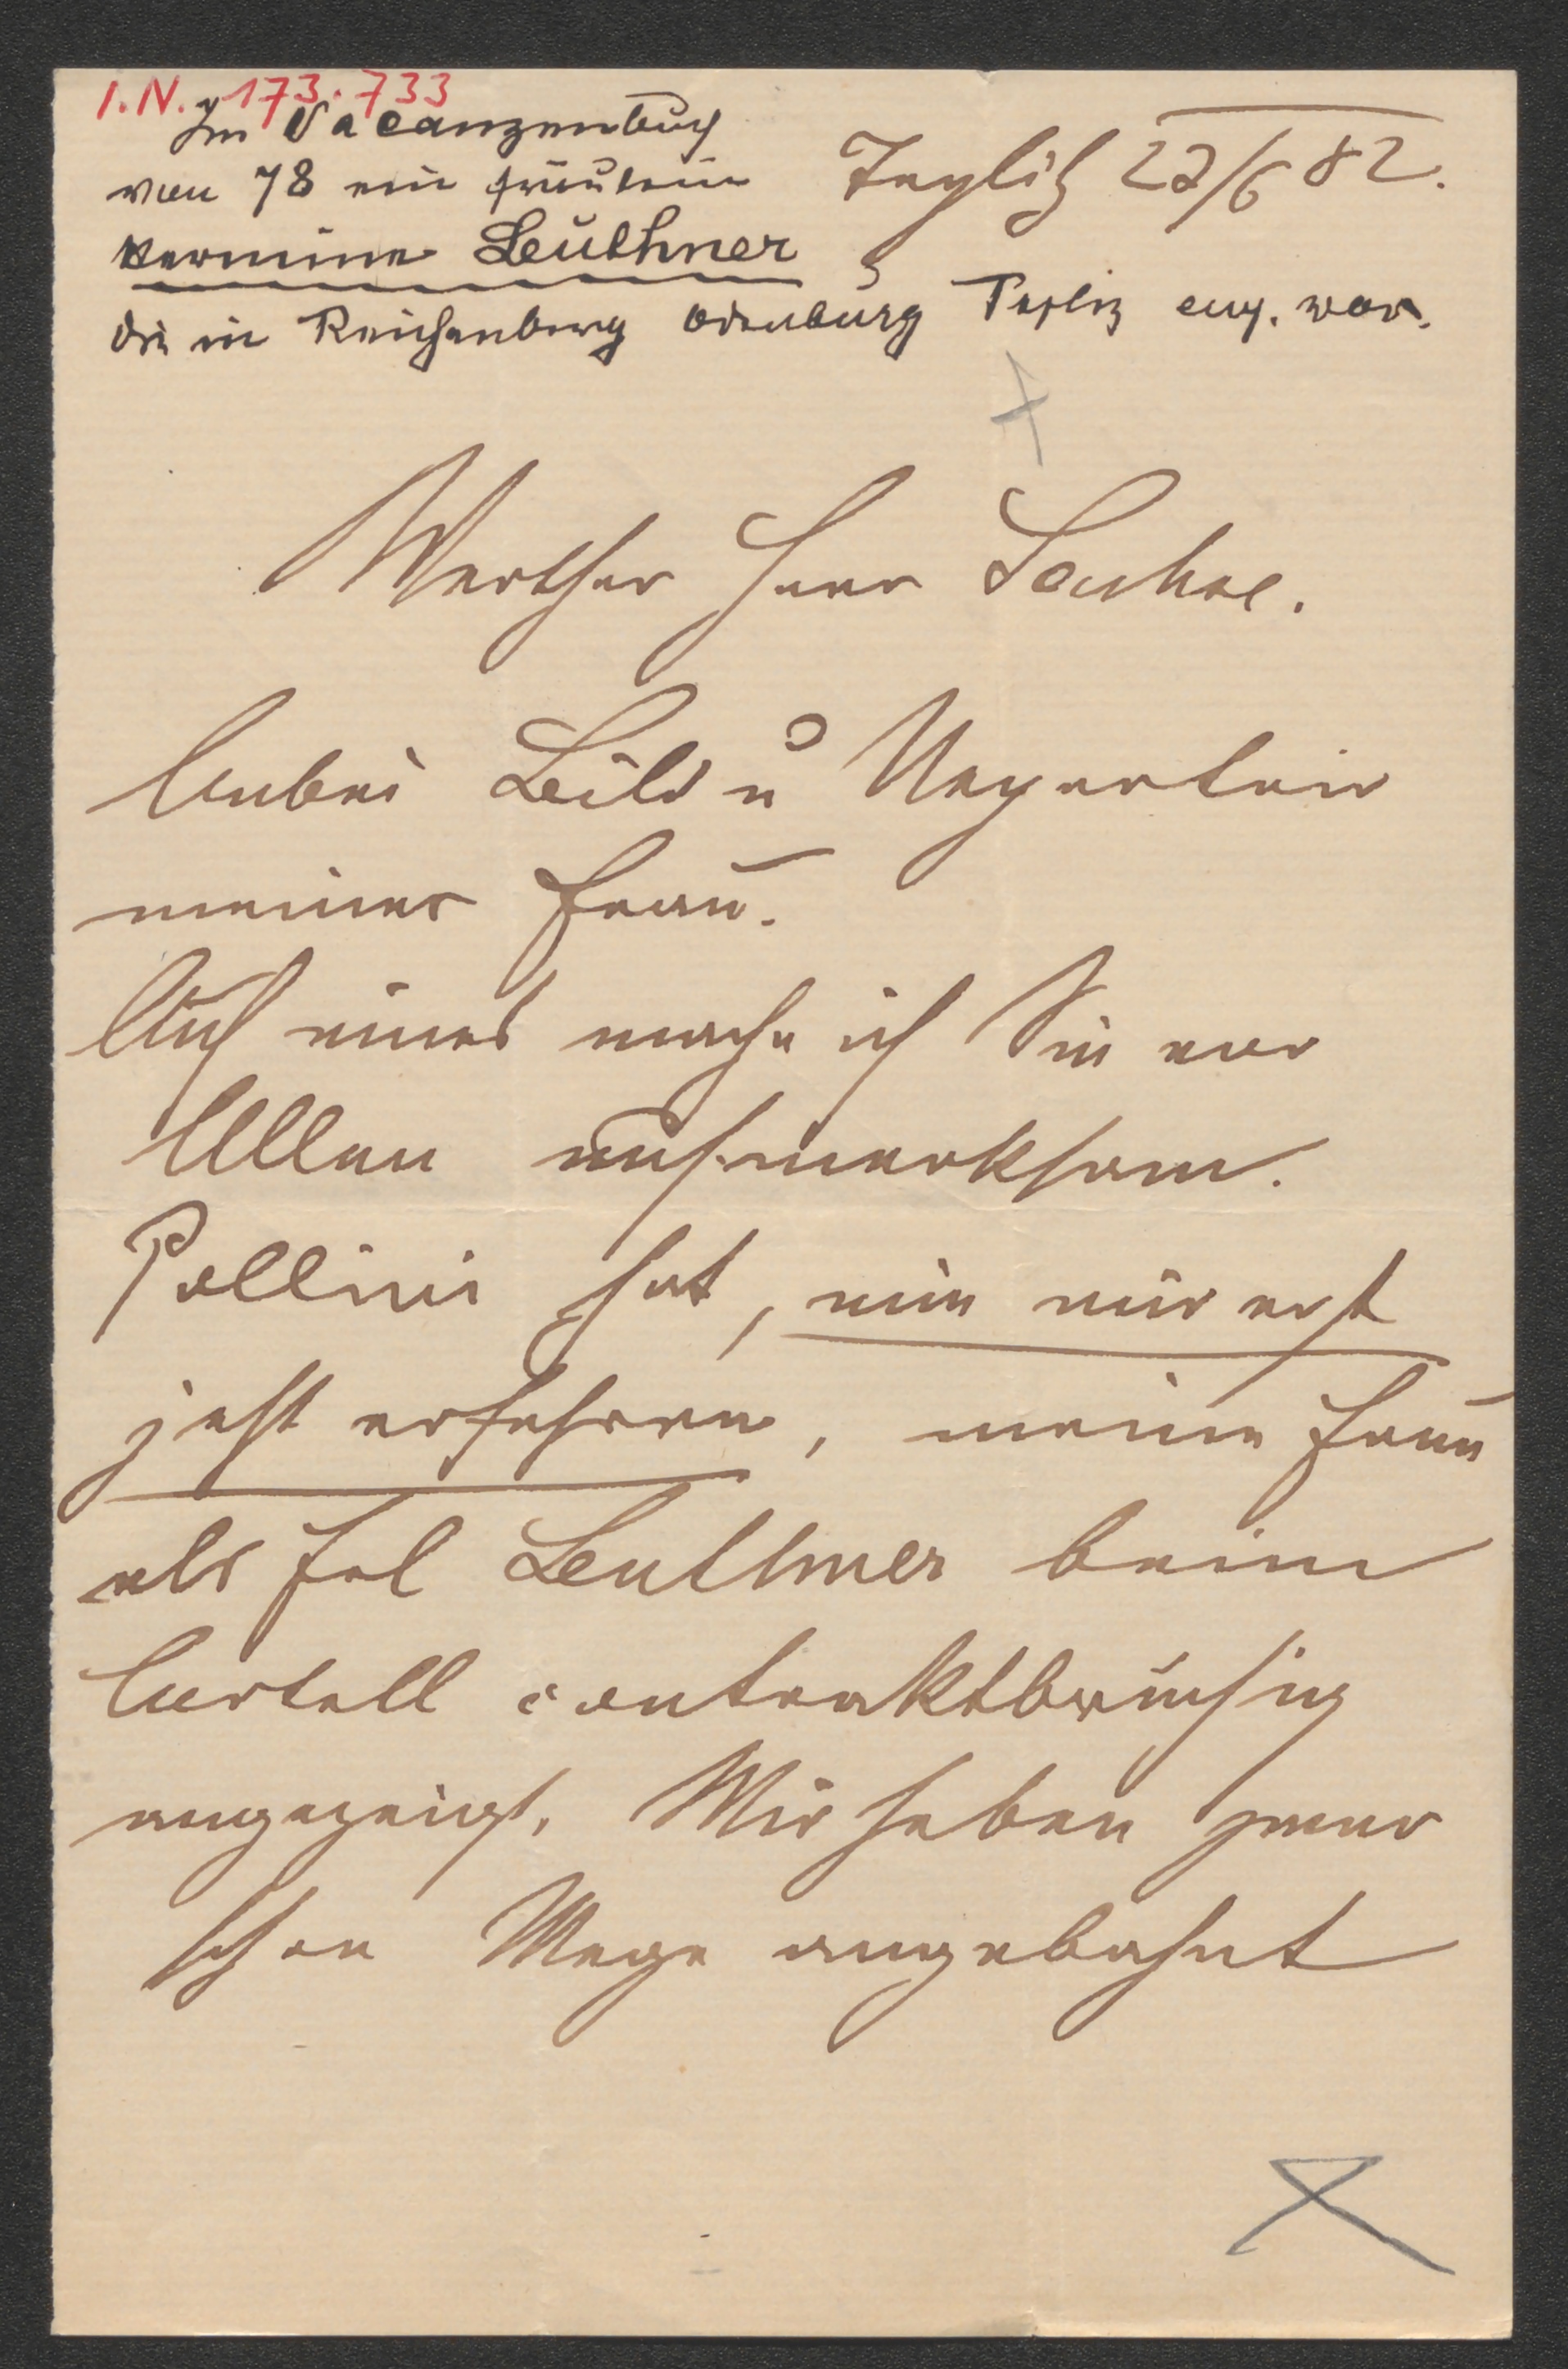 I.N. 173.733
Im Vacanzenbuch
von 78 ein Fräulein
Hermine Leuthner
die in Reichenberg Ödenburg Tepliz eng. war.
Teplitz 22/6 82.
Werther Herr
Anbei Bild u Repertoir
meiner Frau.
Auf eines mache ich Sie vor
Allem aufmerksam.
Pollini hat, wie wir erst
jetzt erfahren, meine Frau
als Frl Leuthner beim
Cartell contraktbrüchig
angezeigt. Wir haben zwar
schon Wege angebahnt